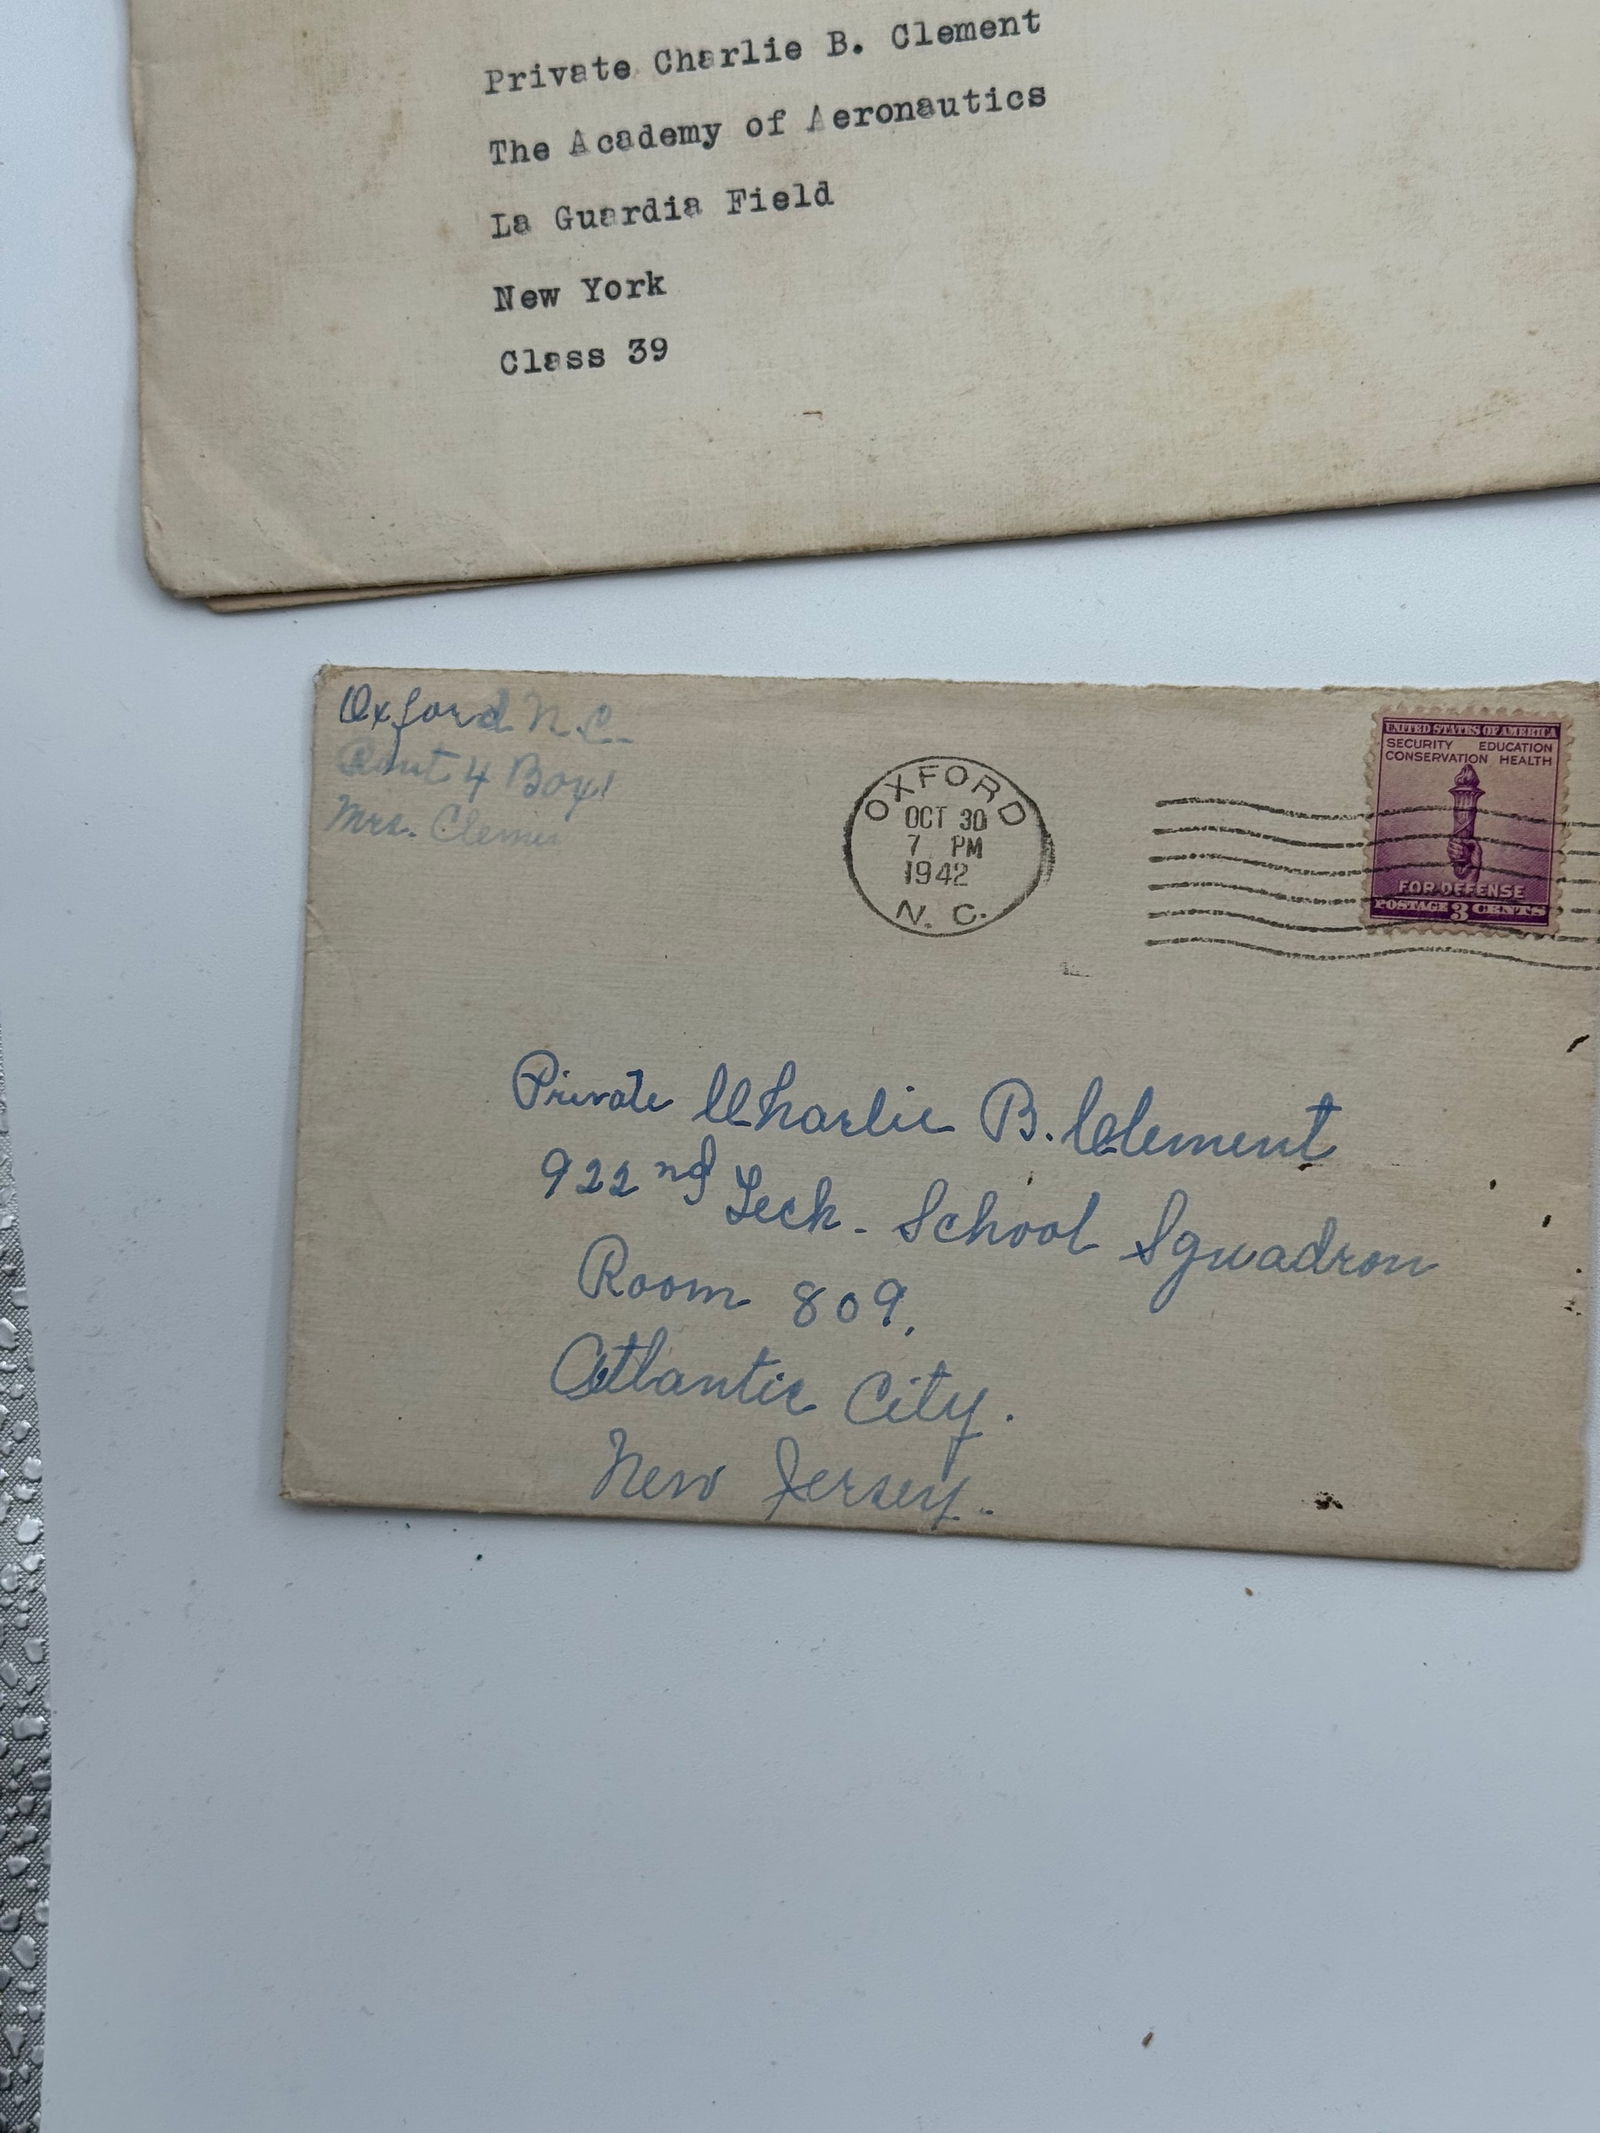 Private Charlie B. Clement
The Academy of Aeronautics
La Guardia Field
New York
Class 39
Oxford N.C.
Rout 4 Box 1
Mrs. Clemen
OXFORD
OCT 30
7 PM
1942
N. C.
UNITED STATES OF AMERICA
SECURITY EDUCATION
CONSERVATION HEALTH
FOR DEFENSE
POSTAGE 3 CENTS
Private Charlie B. Clement
922nd Tech. School Squadron
Room 809.
Atlantic City.
New Jersey.